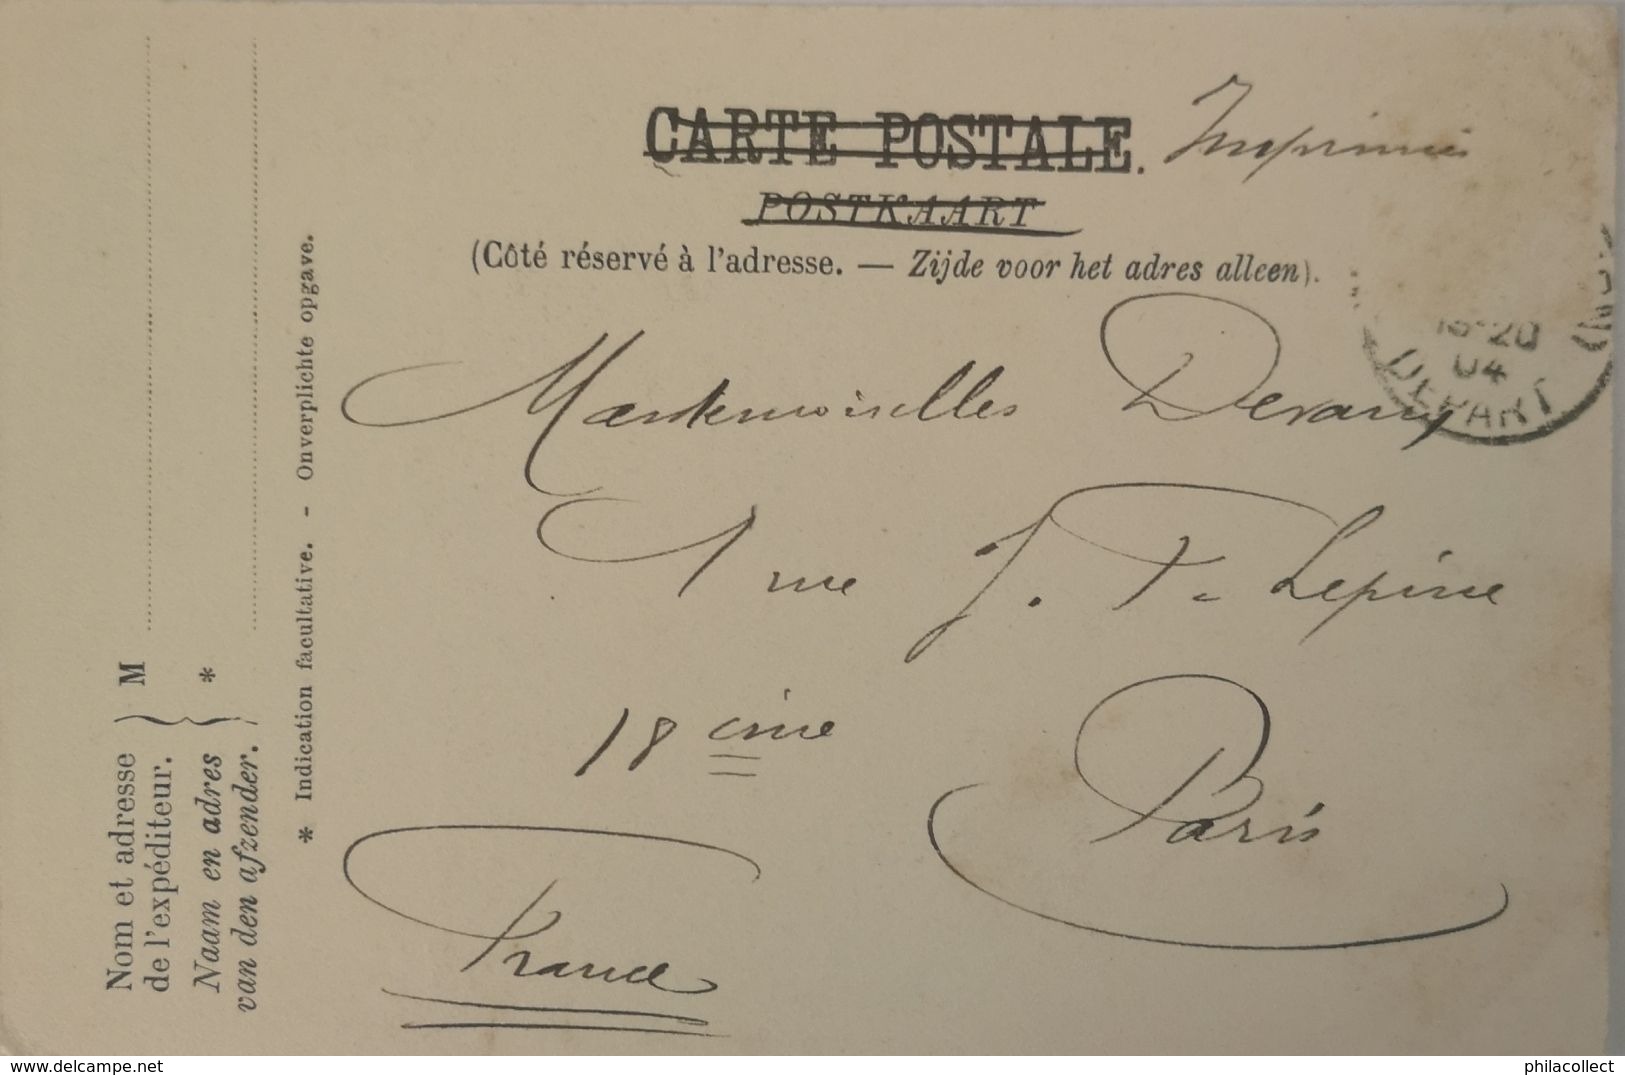 CARTE POSTALE. Imprimés
POSTKAART
(Côté réservé à l'adresse. — Zijde voor het adres alleen).
15-20
04
DEPART
(NORD)
Mesdemoiselles
1 rue J. F. Lépine
18 ème Paris
France
Nom et adresse
de l'expéditeur.
M
Naam en adres
van den afzender.
*
* Indication facultative. - Onverplichte opgave.
www.delcampe.net
philacollect